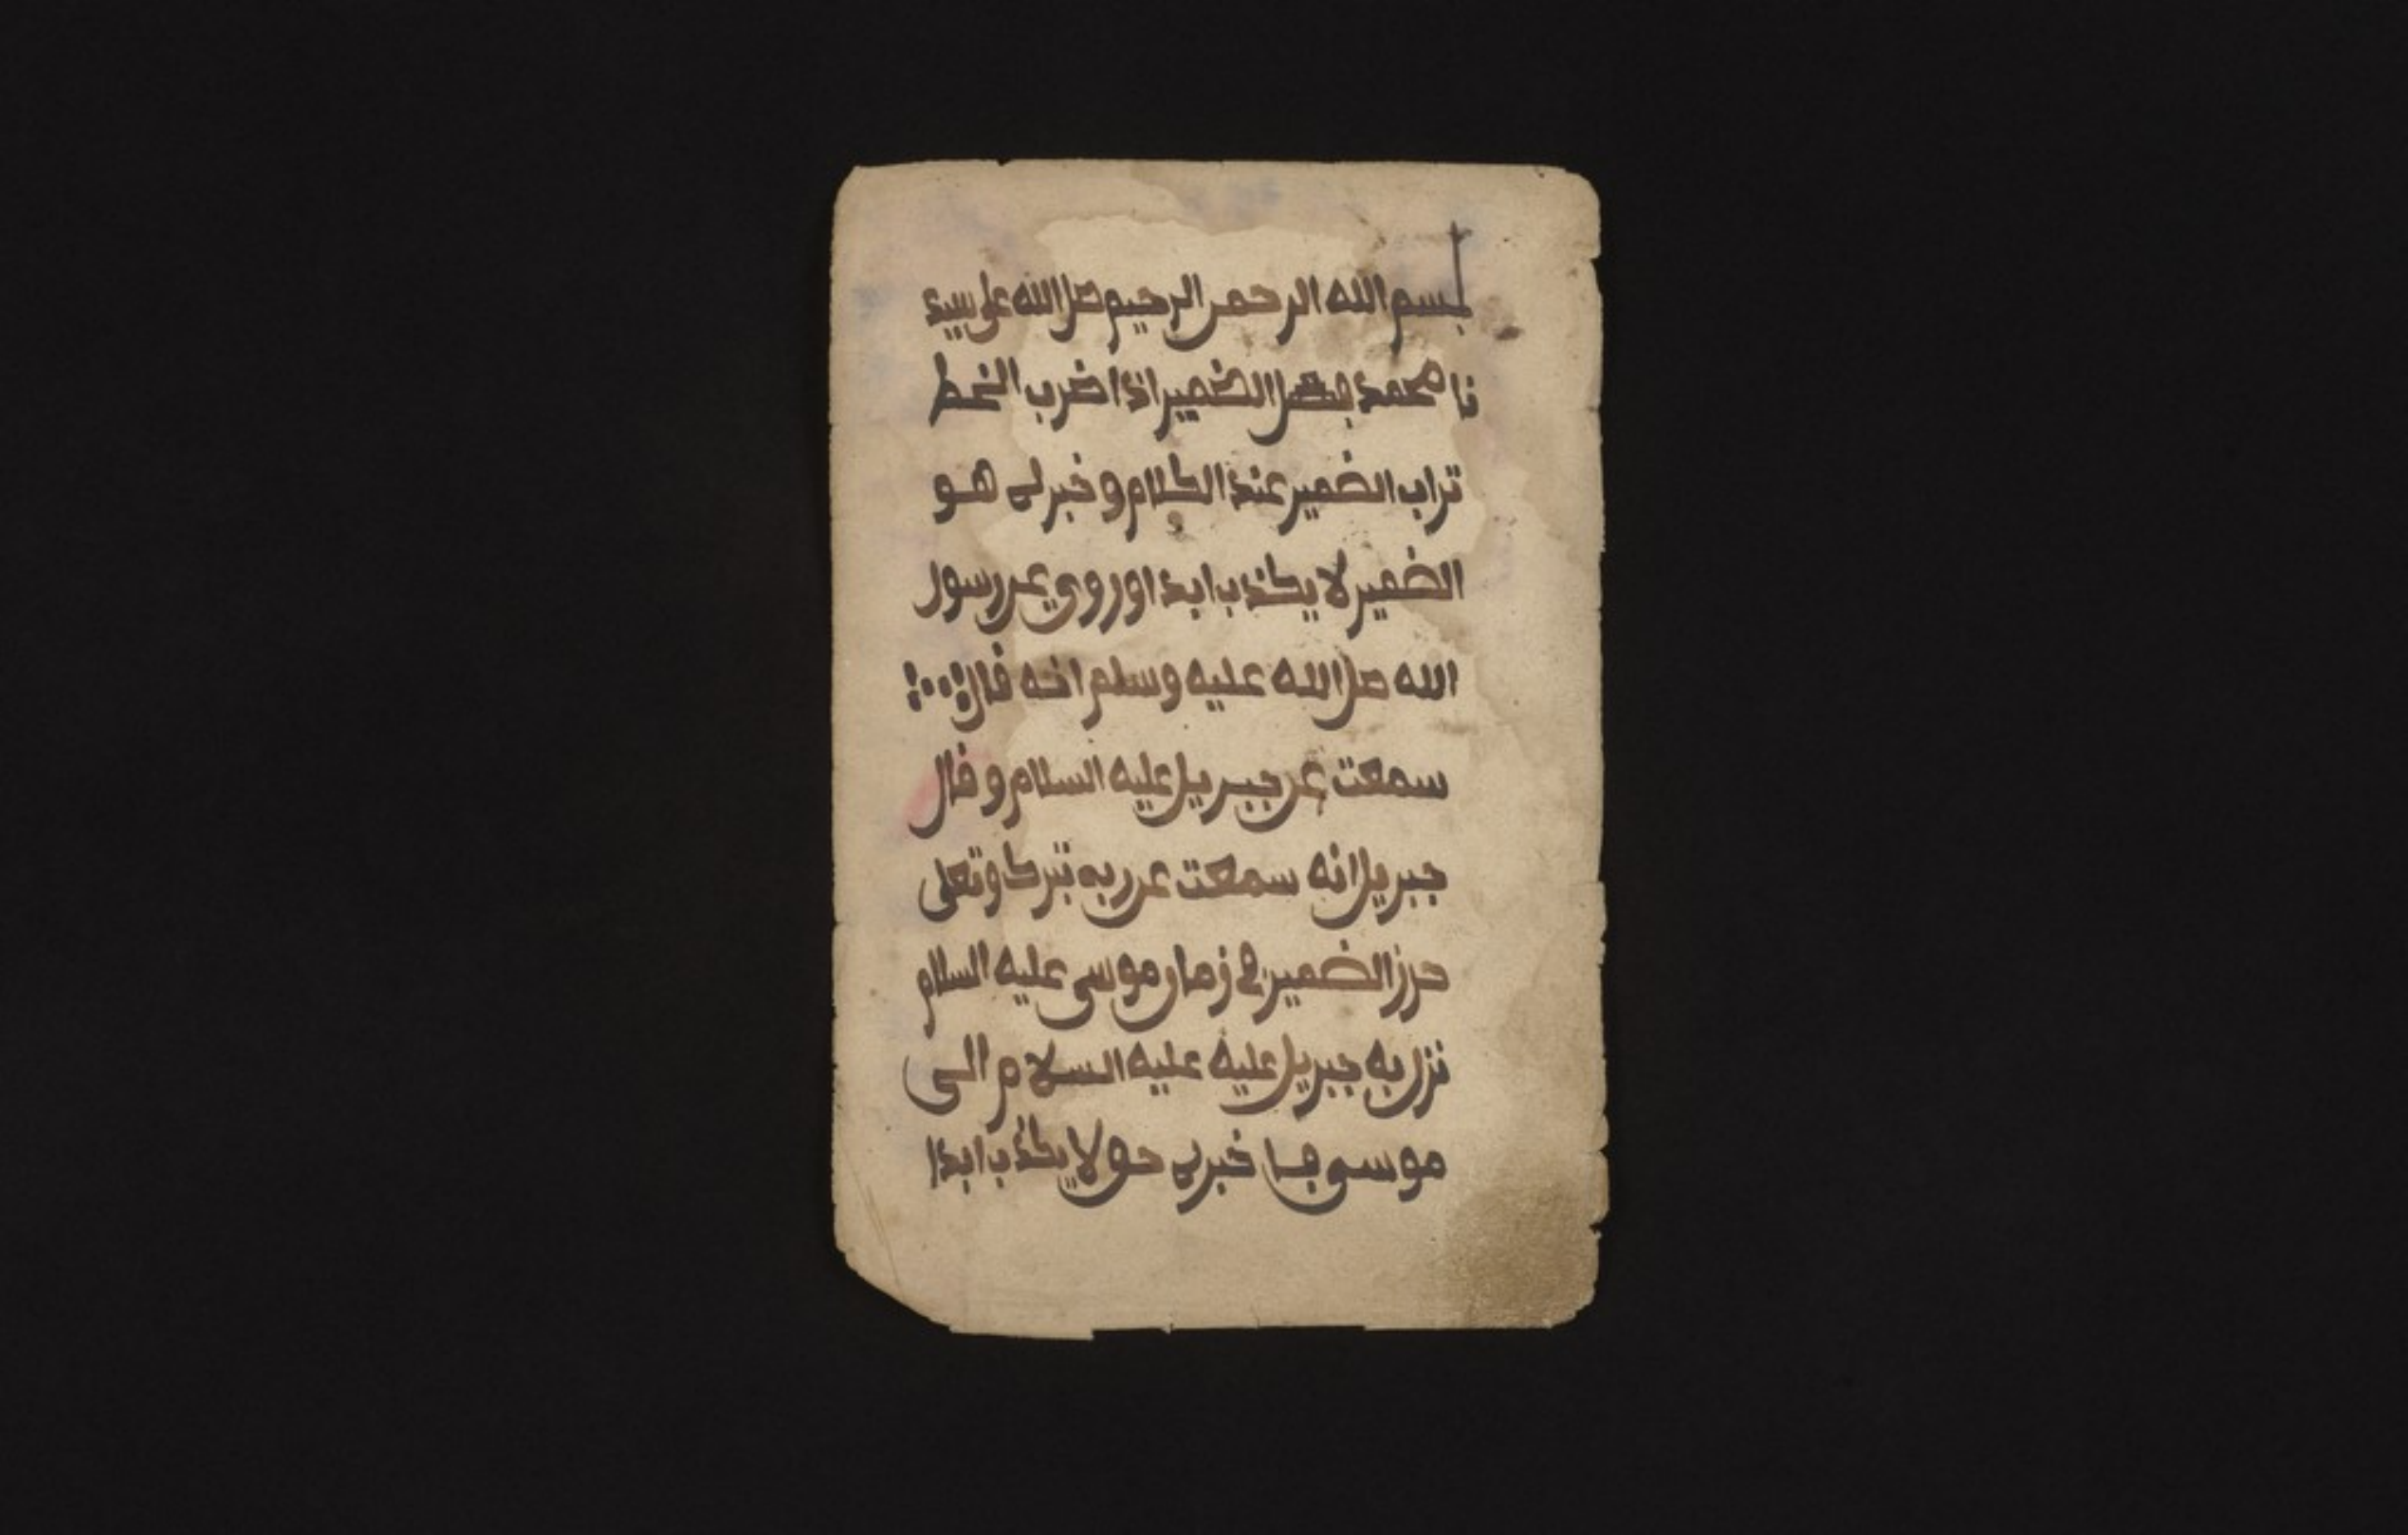 بسم الله الرحمن الرحيم صل الله على سيد
نا محمد فصل الضمير اذا ضرب الخط
تراب الضمير عند الكلام و خبر لى هو
الضمير لا يكذب ابدا وروي عن رسول
الله صل الله عليه وسلم انه قال
سمعت عن جبريل عليه السلام و قال
جبريل انه سمعت عن ربه تبرك وتعلى
حرز الضمير في زمان موسى عليه السلام
نزل به جبريل عليه عليه السلام الى
موسى خبر حو لا يكذب ابدا